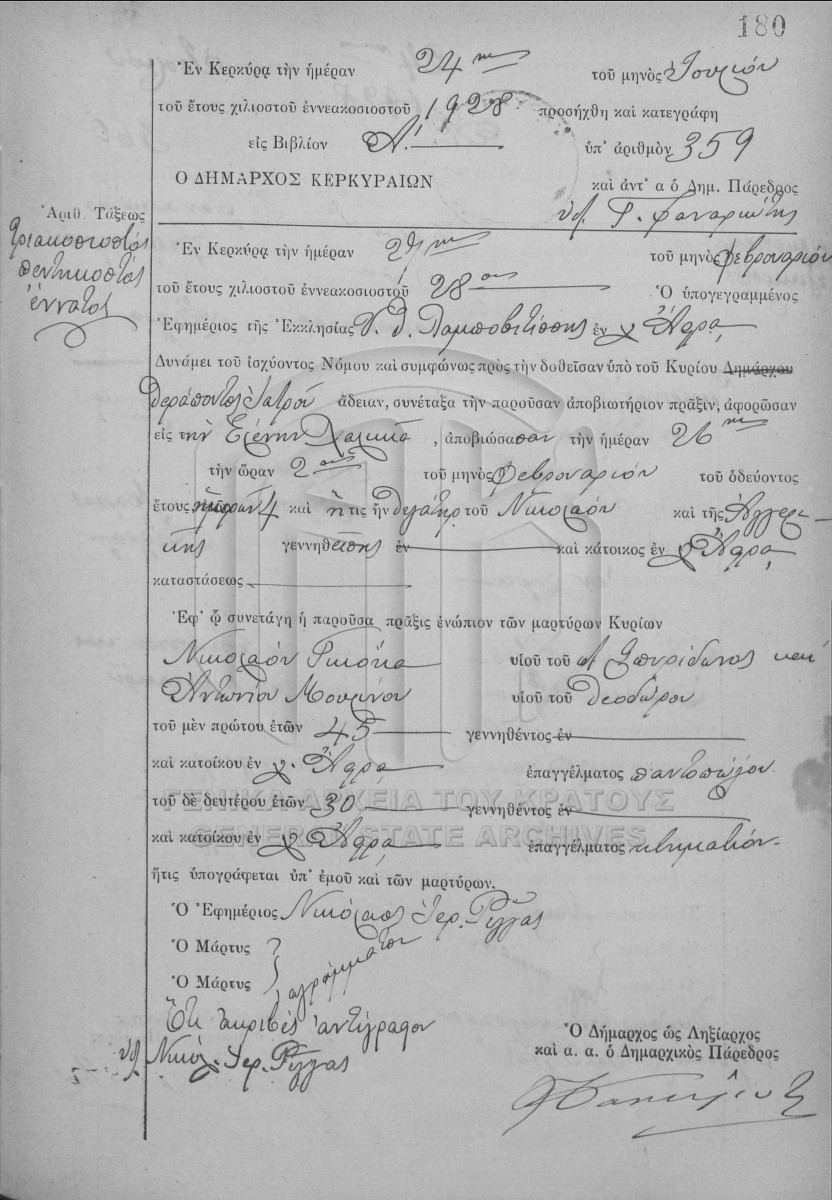 180
Ἐν Κερκύρᾳ τὴν ἡμέραν 24 ην τοῦ μηνὸς Ἰουνίου
τοῦ ἔτους χιλιοστοῦ ἐννεακοσιοστοῦ 1928 προσήχθη καὶ κατεγράφη
εἰς Βιβλίον Α΄. ὑπ' ἀριθμὸν 359
Ο ΔΗΜΑΡΧΟΣ ΚΕΡΚΥΡΑΙΩΝ καὶ ἀντ' α ὁ Δημ. Πάρεδρος
Ἀριθ. Τάξεως
τριακοσιοστὸς
πεντηκοστὸς
ἔννατος
Ἐν Κερκύρᾳ τὴν ἡμέραν 27 ην τοῦ μηνὸς Φεβρουαρίου
τοῦ ἔτους χιλιοστοῦ ἐννεακοσιοστοῦ 28 ου Ὁ ὑπογεγραμμένος
Ἐφημέριος τῆς Ἐκκλησίας ἐν χ. Ἄφρα
Δυνάμει τοῦ ἰσχύοντος Νόμου καὶ συμφώνως πρὸς τὴν δοθεῖσαν ὑπὸ τοῦ Κυρίου Δημάρχου
θεράποντος Ἰατροῦ ἄδειαν, συνέταξα τὴν παροῦσαν ἀποβιωτήριον πρᾶξιν, ἀφορῶσαν
εἰς τὴν Εἰρήνην, ἀποβιώσασαν τὴν ἡμέραν 26 ην
τὴν ὥραν 2 αν τοῦ μηνὸς Φεβρουαρίου τοῦ ὁδεύοντος
ἔτους ἡμερῶν 4 καὶ ἥτις ἦν θυγάτηρ τοῦ Νικολάου καὶ τῆς Ἀγγελι-
κῆς γεννηθείσης ἐν καὶ κάτοικος ἐν χ. Ἄφρα,
καταστάσεως
Ἐφ' ᾧ συνετάγη ἡ παροῦσα πρᾶξις ἐνώπιον τῶν μαρτύρων Κυρίων
Νικολάου υἱοῦ τοῦ Σπυρίδωνος καὶ
Ἀντωνίου υἱοῦ τοῦ Θεοδώρου
τοῦ μὲν πρώτου ἐτῶν 45 γεννηθέντος ἐν
καὶ κατοίκου ἐν χ. Ἄφρα ἐπαγγέλματος παντοπώλου
τοῦ δὲ δευτέρου ἐτῶν 30 γεννηθέντος ἐν
καὶ κατοίκου ἐν χ. Ἄφρα ἐπαγγέλματος κτηματίου.
ἥτις ὑπογράφεται ὑπ' ἐμοῦ καὶ τῶν μαρτύρων.
Ὁ Ἐφημέριος Νικόλαος Ἱερ. Ρίγγας
Ὁ Μάρτυς
Ὁ Μάρτυς ἀγράμματοι
Ὅτι ἀκριβὲς ἀντίγραφον
Νικόλ. Ἱερ. Ρίγγας
Ὁ Δήμαρχος ὡς Ληξίαρχος
καὶ α. α. ὁ Δημαρχικὸς Πάρεδρος
ΓΕΝΙΚΑ ΑΡΧΕΙΑ ΤΟΥ ΚΡΑΤΟΥΣ
GENERAL STATE ARCHIVES